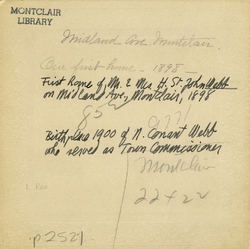 MONTCLAIR
LIBRARY
Midland Ave Montclair.
Our first home - 1898 -
First Home of Mr. & Mrs H. St. John Webb
on Midland Ave, Montclair, 1898
85
Birthplace 1900 of N. Conant Webb
who served as Town Commissioner
Montclair
22422
p2521